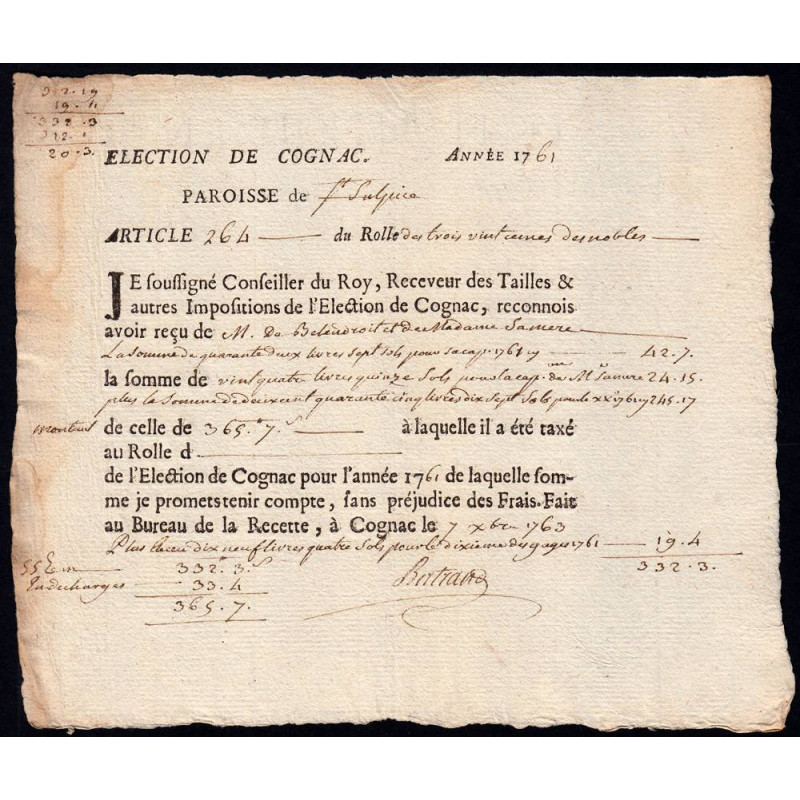 312.19
19.4
332.3
312.
20.3.
ELECTION DE COGNAC. ANNÉE 1761
PAROISSE de St Sulpice
ARTICLE 264 du Rolle des trois vintiemes des nobles
JE soussigné Conseiller du Roy, Receveur des Tailles &
autres Impositions de l'Election de Cognac, reconnois
avoir reçu de M. De et de Madame Samere
La Somme de quarante deux livres sept sols pour sa cap. 1761 cy 42.7.
la somme de vint quatre livres quinze sols pour la cap. de Mme Samere 24.15.
plus la somme de deux cent quarante cinq livres dix sept sols pour le xxe 1761 cy 245.17
montant de celle de 365.# 7.s à laquelle il a été taxé
au Rolle d
de l'Election de Cognac pour l'année 1761 de laquelle som-
me je promets tenir compte, sans préjudice des Frais. Fait
au Bureau de la Recette, à Cognac le 7 xbre 1763
Plus dix neuf livres quatre sols pour le dixieme des gages 1761 19.4
332.3.s 332.3.
En decharges 33.4
365.7.
Bertrand